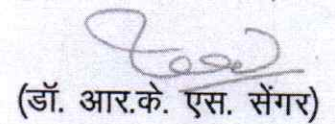 (डॉ. आर.के. एस. सेंगर)